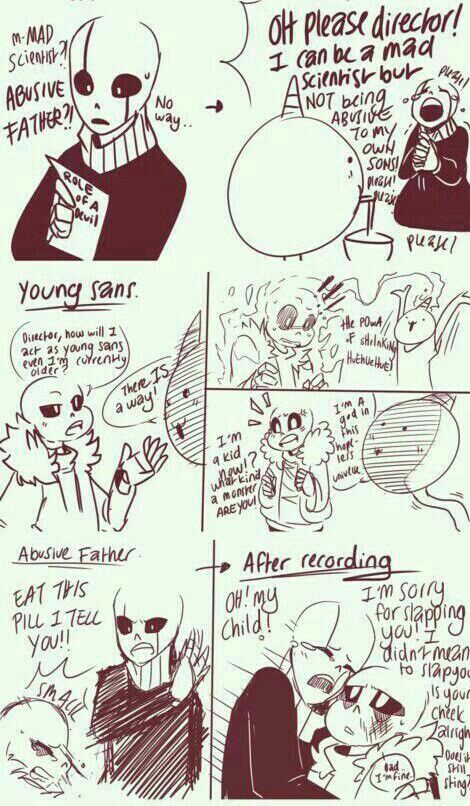 M-MAD
SCIENTIST?!
ABUSIVE
FATHER?!
No
way..
ROLE
OF A
Devil
OH please director!
I can be a mad
scientist but
NOT being
ABUSIVE
TO MY
OWN
SONS!
please!
please!
please!
please!
Young sans.
Director, how will I
act as young sans
even I'm currently
older?
There IS
a way!
the POWA
OF SHRINKING
HUEHUEHUE!
I'm
a kid
now!?
what kind
a monster
ARE YOU!
I'm A
god in
this
hope-
less
universe
Abusive Father.
EAT THIS
PILL I TELL
YOU!!
SMACK
After recording
OH! my
child!
I'm sorry
for slapping
you! I
didn't mean
to slap you
Is your
cheek
alright
Does it
still
sting?
Dad..
I'm fine.